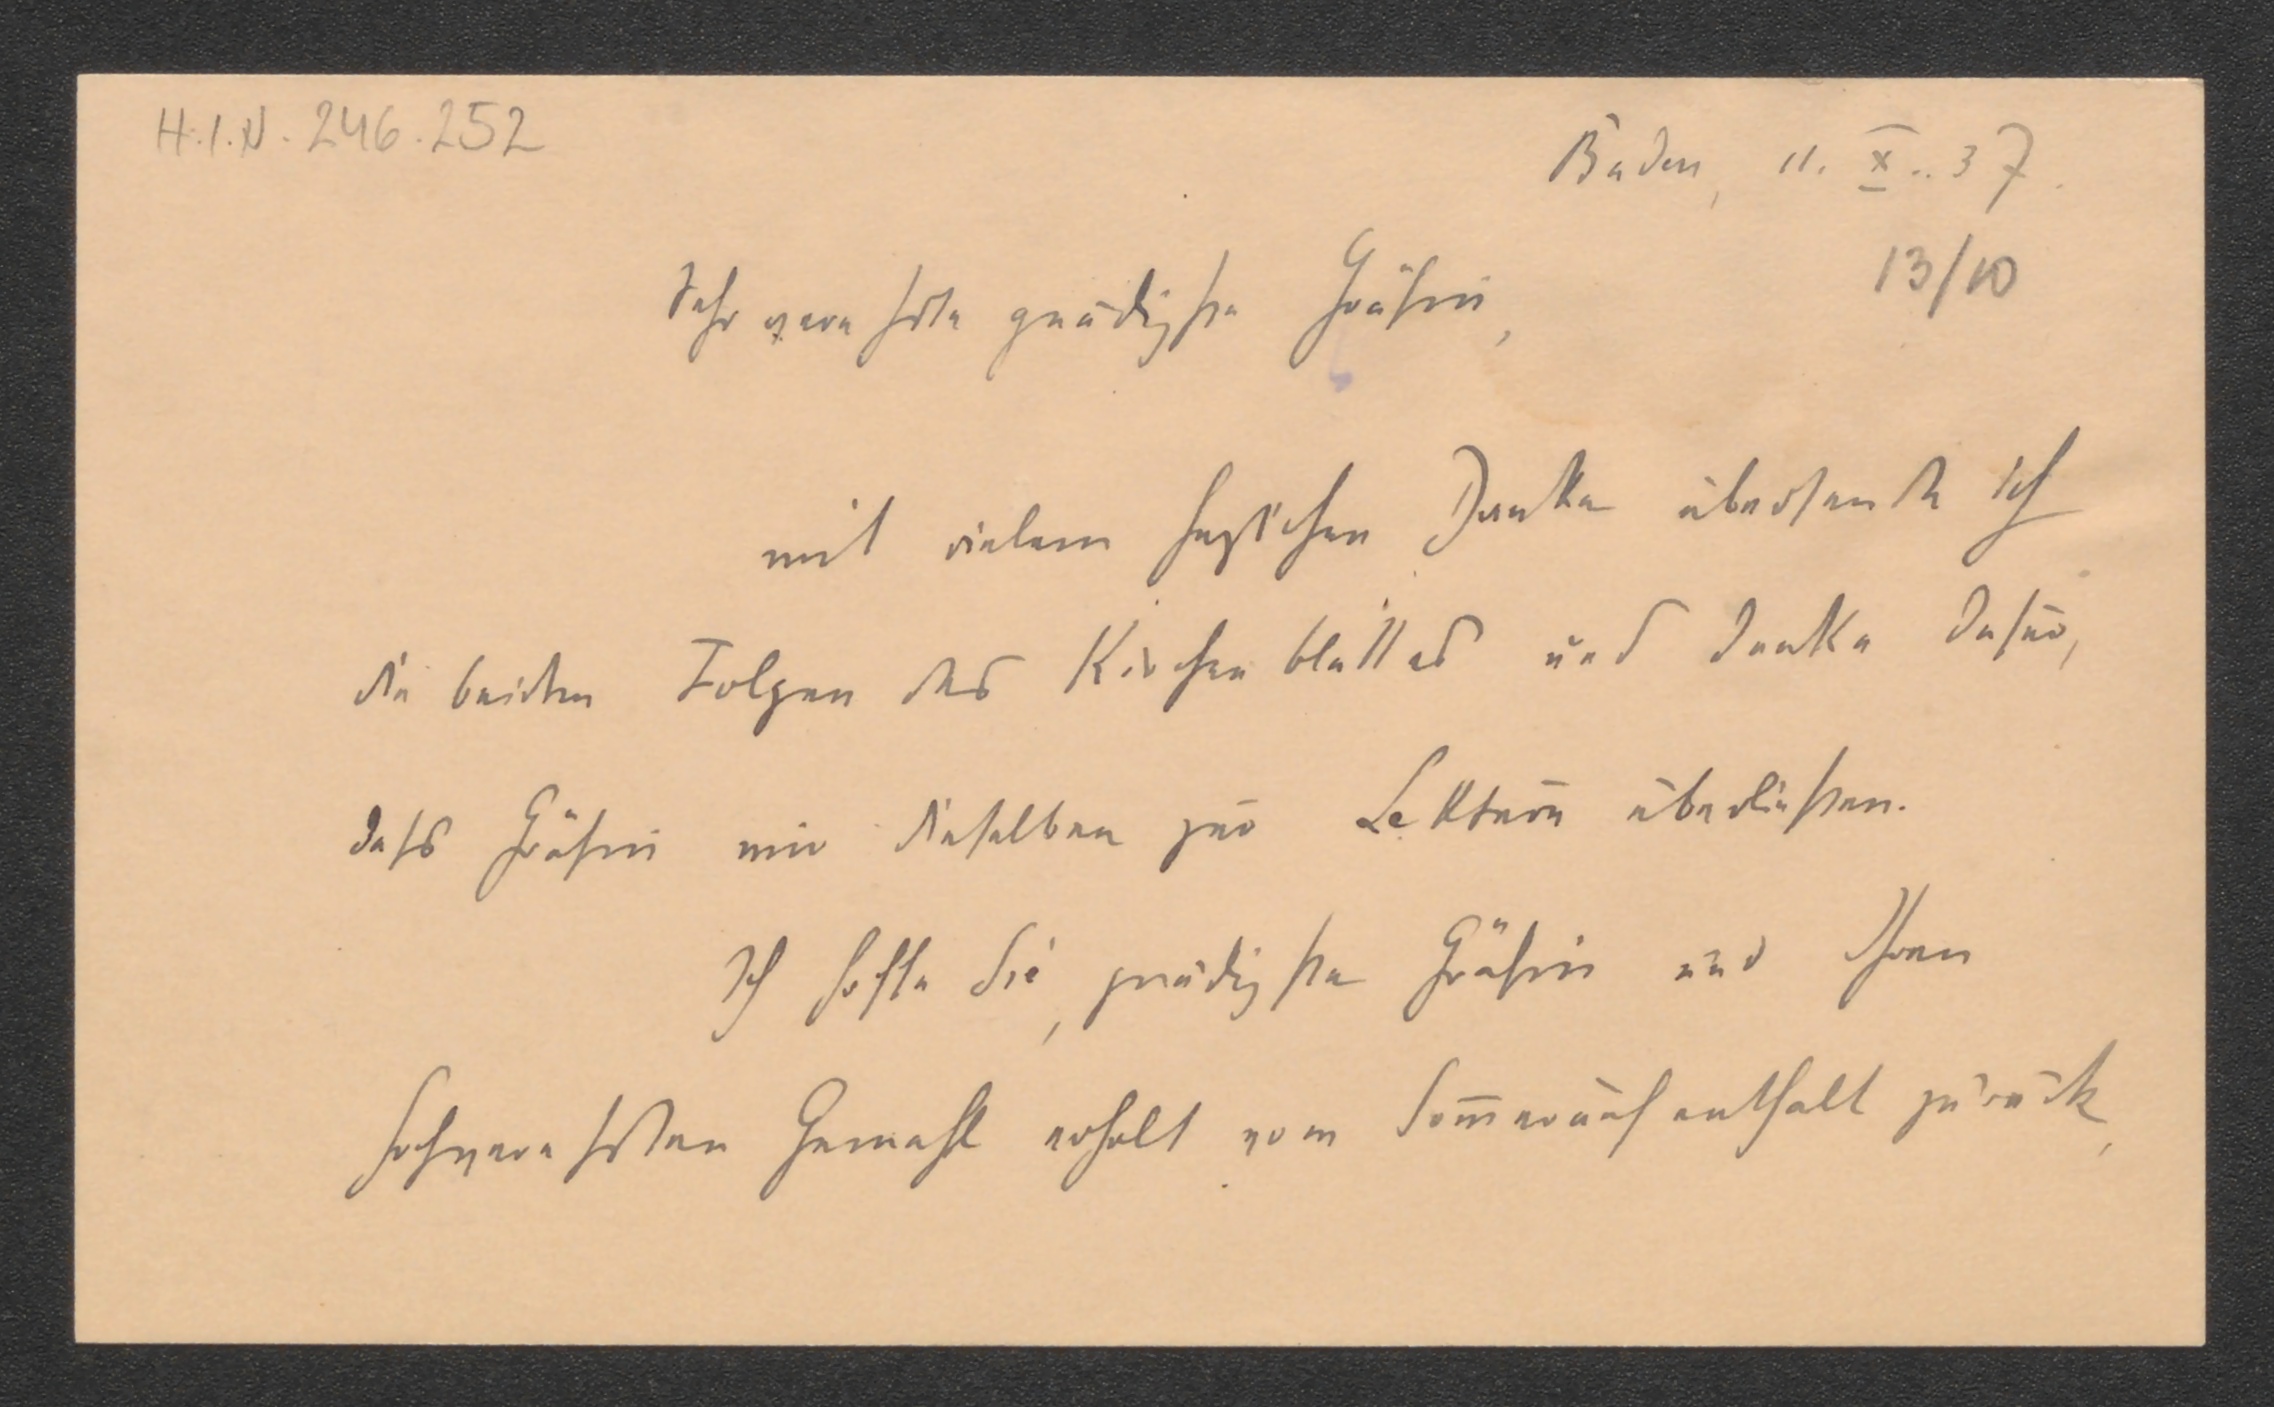 H.I.N. 246.252
Baden, 11. X. 37.
13/10
Sehr verehrte gnädigste Gräfin,
mit vielem herzlichen Danke übersende ich
die beiden Folgen des Kirchenblattes und danke dafür,
dass Gräfin mir dieselben zur Lektüre überließen.
Ich hoffe Sie, gnädigste Gräfin und Ihren
hochverehrten Gemahl erholt vom Som̅eraufenthalt zurück,